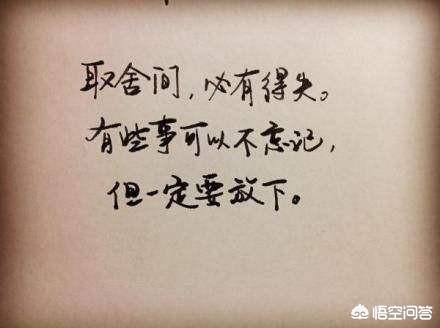 取舍间，必有得失。
有些事可以不忘记，
但一定要放下。
悟空问答